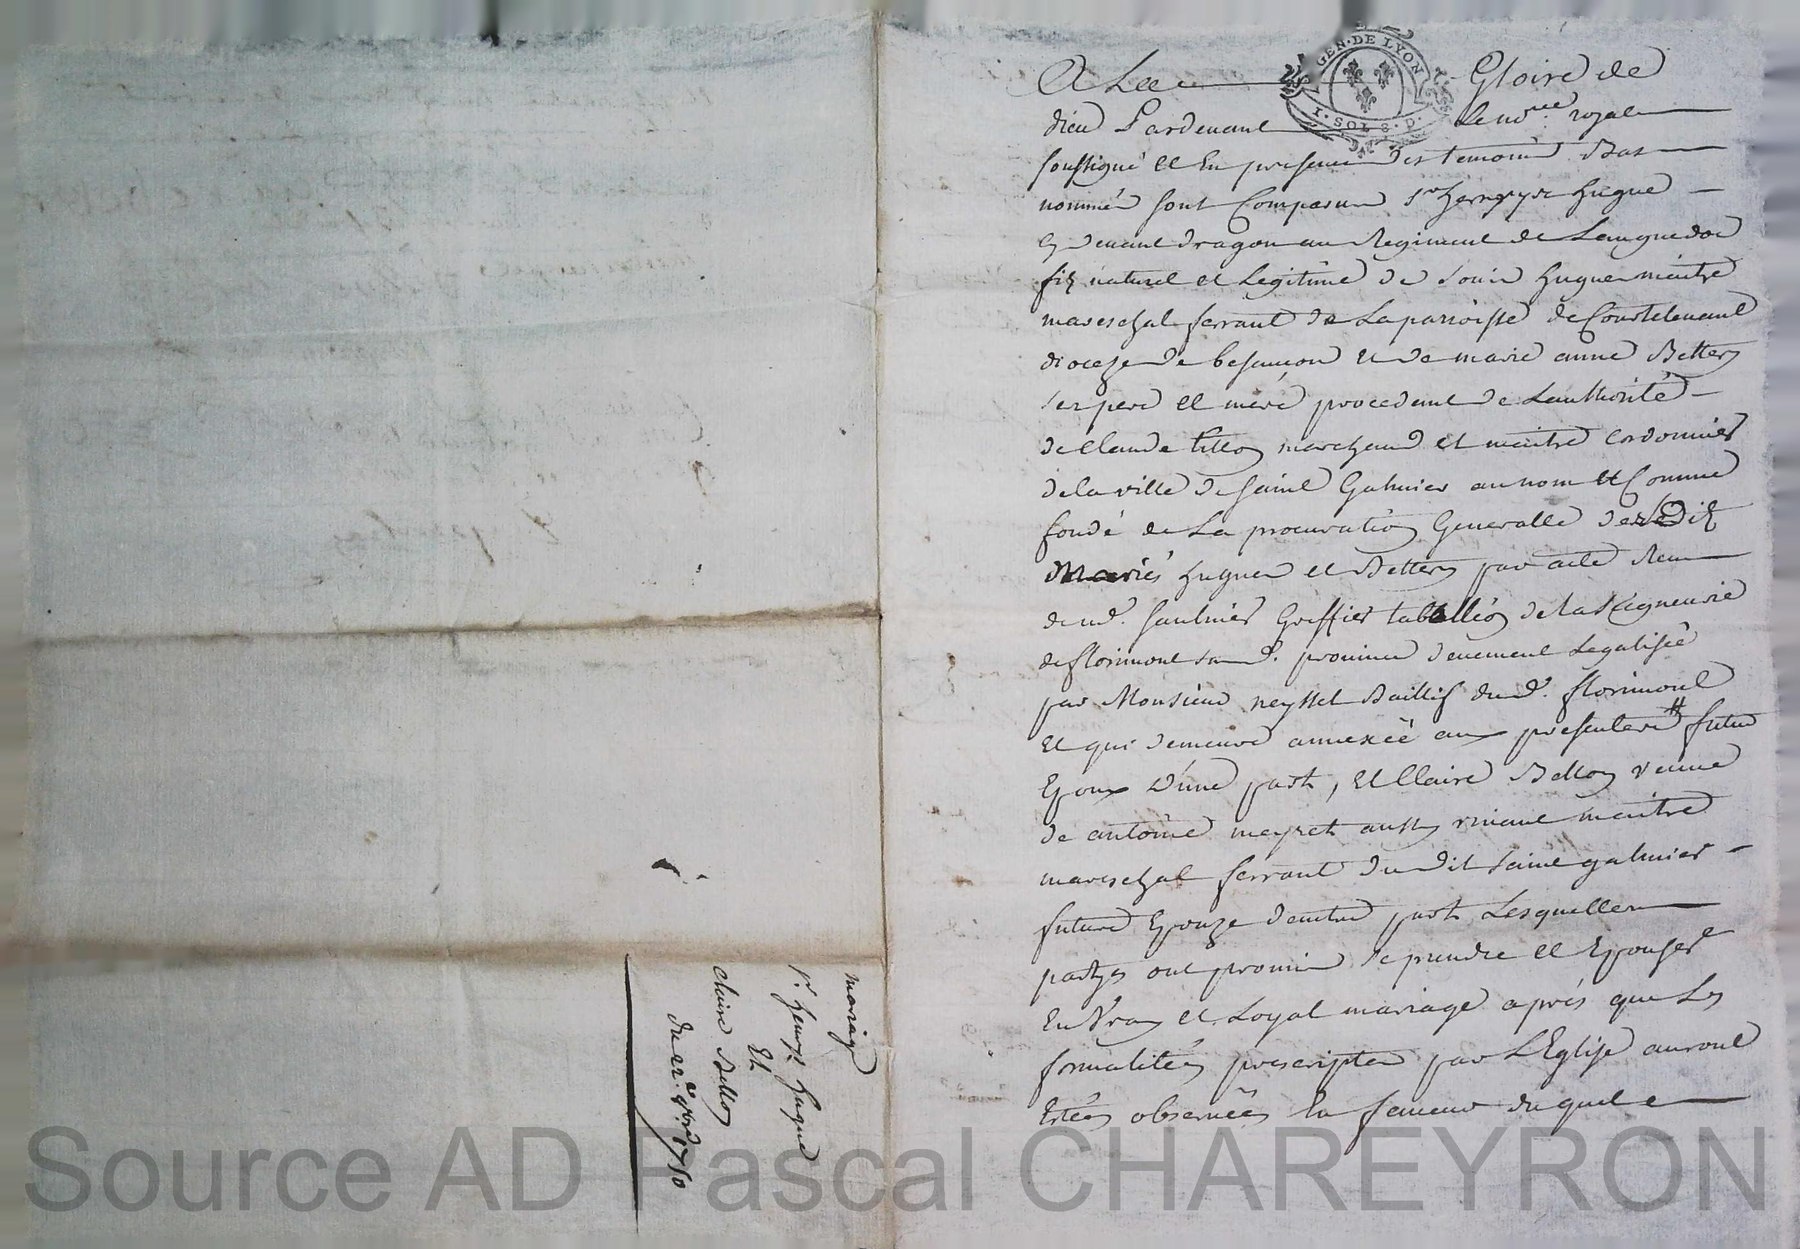 mariage
Sr. henry hugue
Et
claire Bello
du 22e. 9bre 1750
A La Gloire de
GEN·DE LYON
1·SOL 8·D.
dieu Pardevant le nore. royal
soussigné et En presence des temoins Bas
nommés sont Comparus Sr henry hugue
cy devant dragon au Regiment de Languedoc
fils naturel et Legitime de Louis hugue maitre
mareschal ferrant de La parroisse de Courtelevant
dioceze de besancon et de marie anne Bettey
ses pere et mere procedant de Lauthorité
de Claude marchand et maitre Cordonnier
de la ville de saint Galmier au nom et Comme
fondé de La procuration Generalle desdits
Mariés hugue et Bettey par acte Reçu
dud. saulnier Greffier tabellion de la seigneurie
de florimont sad. province deuement Legalisée
par Monsieur neyssel Baillif dud. florimont
Et qui demeure annexée aux presentes # futur
Epoux d'une part, Et Claire Belloy veuve
de antoine meyret aussy vivant maitre
mareschal ferrant du dit saint galmier
future Epouze d'autre part Lesquelles
partyes ont promis se prendre et Epouser
En Vray et Loyal mariage aprés que Les
formalités prescriptes par L'Eglise auront
Estées observées En faveur duquel
Source AD Pascal CHAREYRON